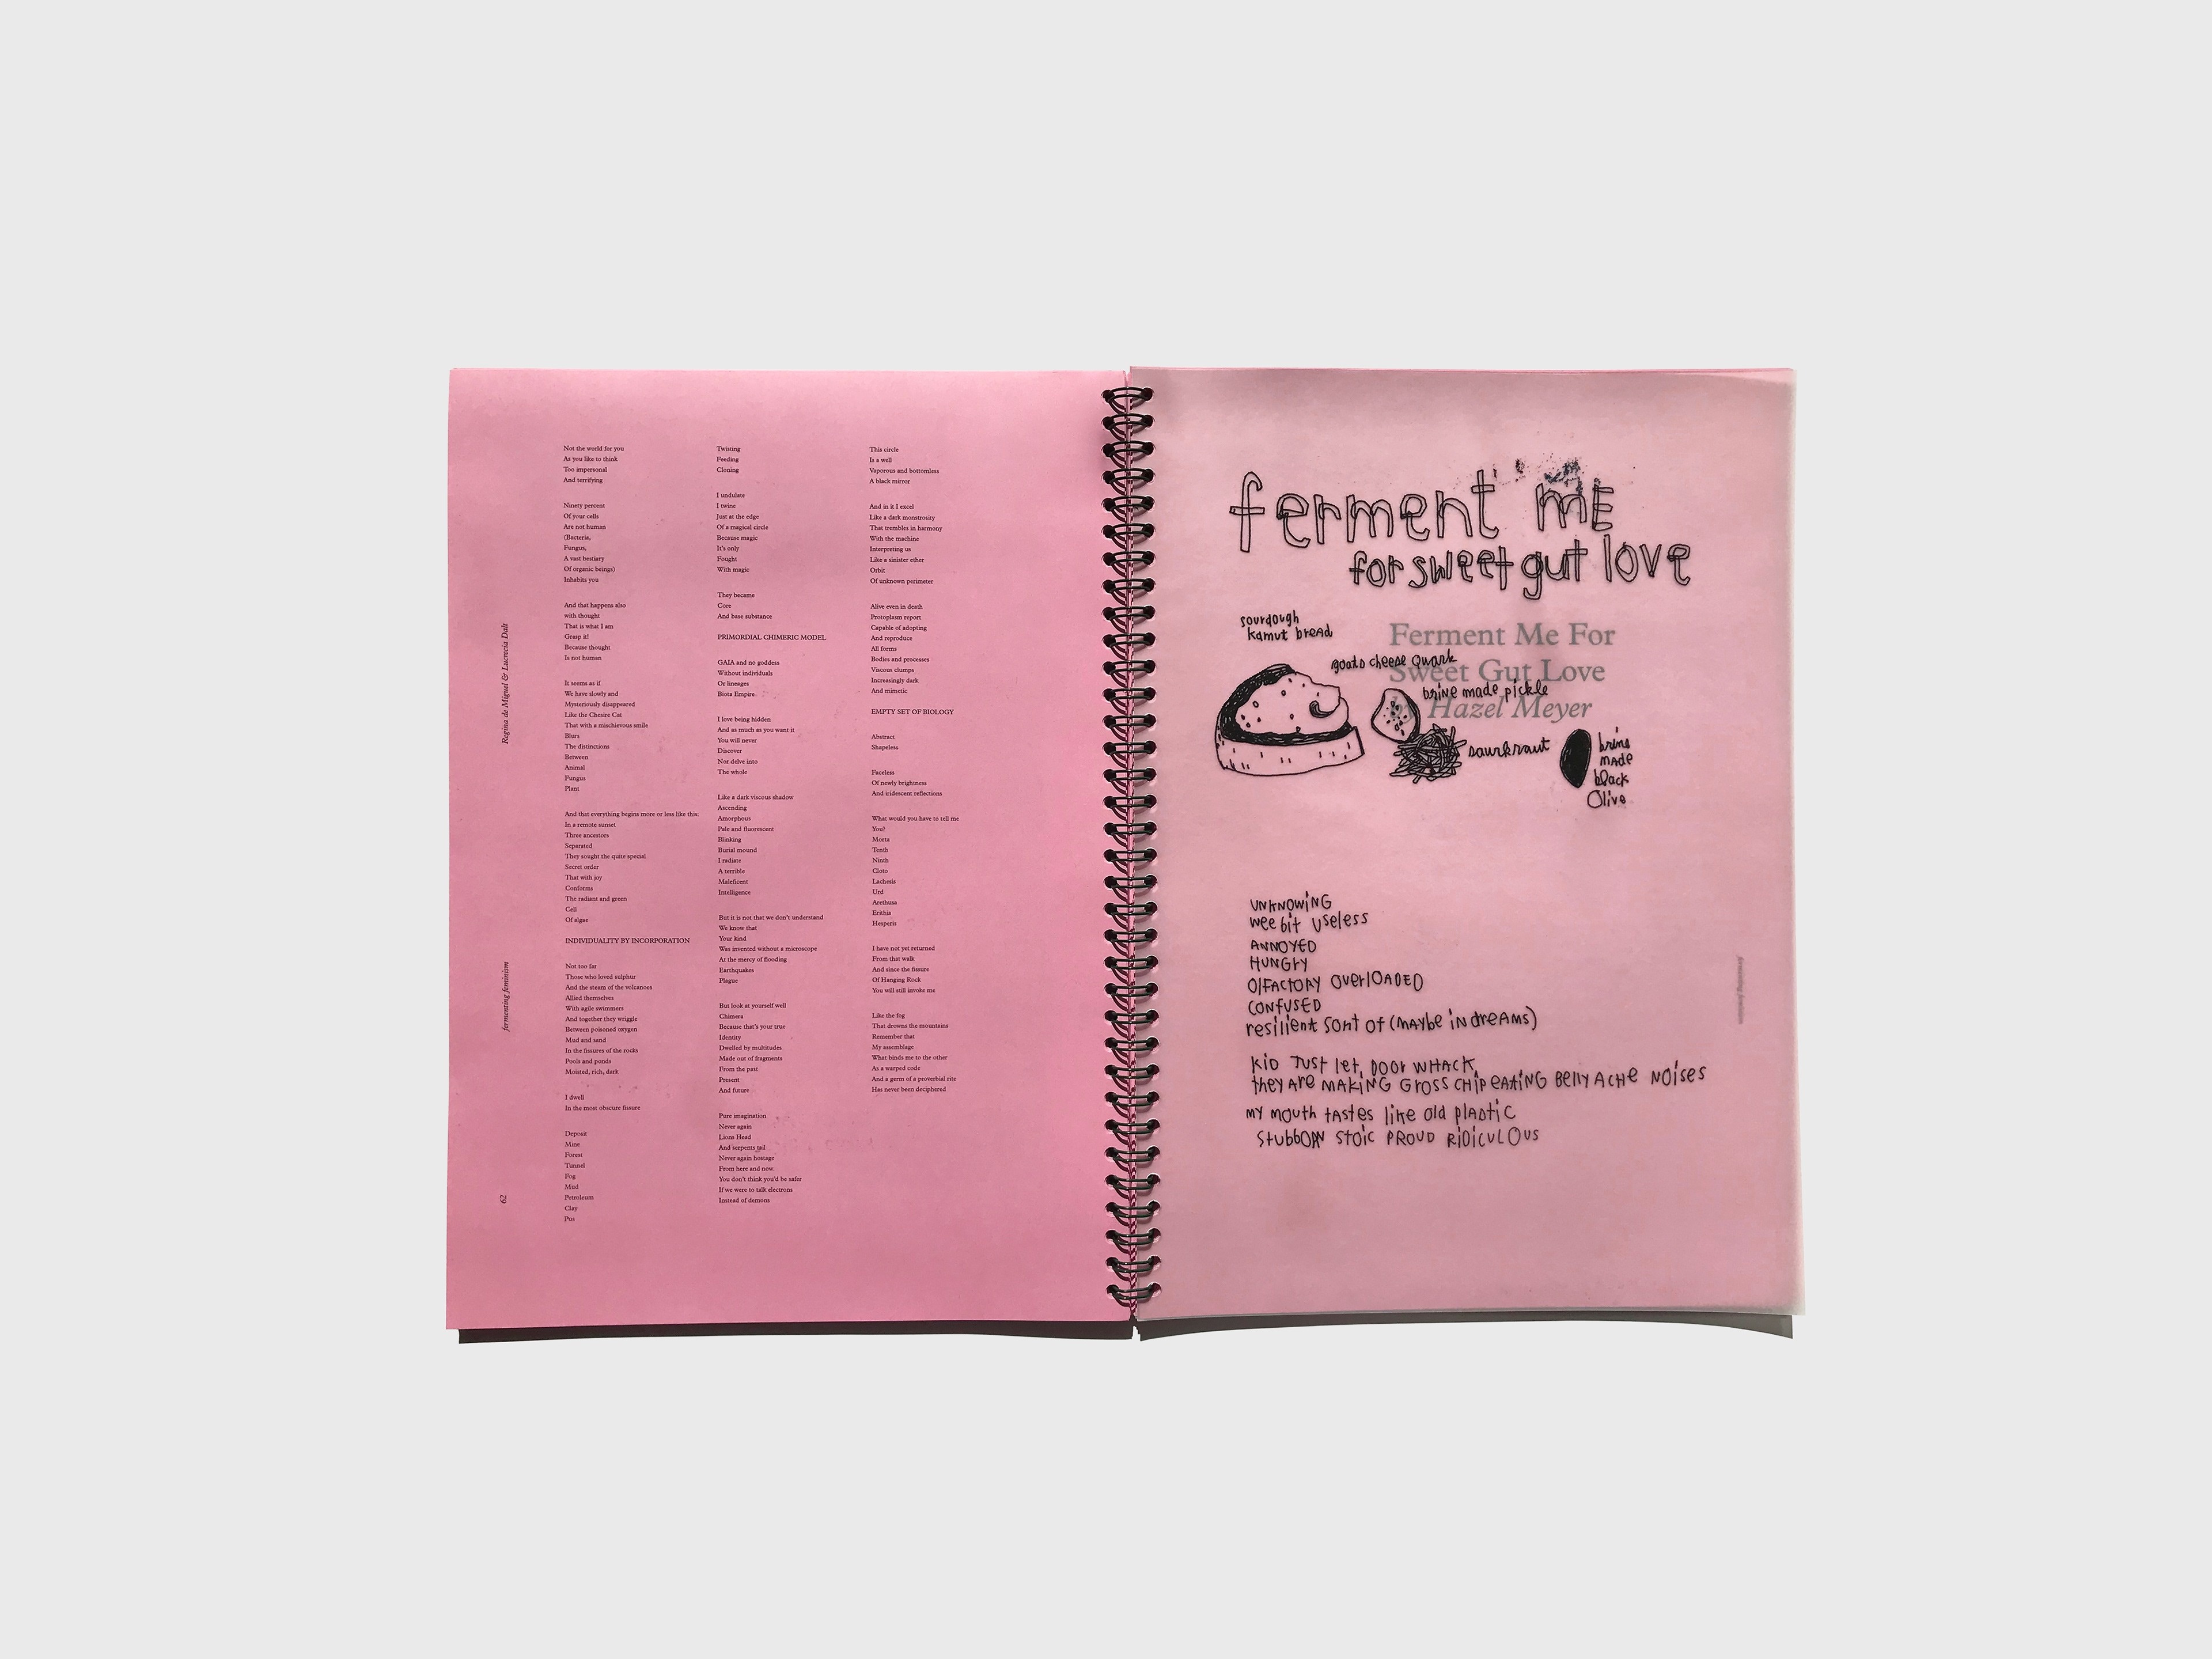 Not the world for you
As you like to think
Too impersonal
And terrifying
Ninety percent
Of your cells
Are not human
(Bacteria,
Fungus,
A vast bestiary
Of organic beings)
Inhabits you
And that happens also
with thought
That is what I am
Grasp it!
Because thought
Is not human
It seems as if
We have slowly and
Mysteriously disappeared
Like the Chesire Cat
That with a mischievous smile
Blurs
The distinctions
Between
Animal
Fungus
Plant
And that everything begins more or less like this:
In a remote sunset
Three ancestors
Separated
They sought the quite special
Secret order
That with joy
Conforms
The radiant and green
Cell
Of algae
INDIVIDUALITY BY INCORPORATION
Not too far
Those who loved sulphur
And the steam of the volcanoes
Allied themselves
With agile swimmers
And together they wriggle
Between poisoned oxygen
Mud and sand
In the fissures of the rocks
Pools and ponds
Moisted, rich, dark
I dwell
In the most obscure fissure
Deposit
Mine
Forest
Tunnel
Fog
Mud
Petroleum
Clay
Pus
Twisting
Feeding
Cloning
I undulate
I twine
Just at the edge
Of a magical circle
Because magic
It's only
Fought
With magic
They became
Core
And base substance
PRIMORDIAL CHIMERIC MODEL
GAIA and no goddess
Without individuals
Or lineages
Biota Empire
I love being hidden
And as much as you want it
You will never
Discover
Nor delve into
The whole
Like a dark viscous shadow
Ascending
Amorphous
Pale and fluorescent
Blinking
Burial mound
I radiate
A terrible
Maleficent
Intelligence
But it is not that we don't understand
We know that
Your kind
Was invented without a microscope
At the mercy of flooding
Earthquakes
Plague
But look at yourself well
Chimera
Because that's your true
Identity
Dwelled by multitudes
Made out of fragments
From the past
Present
And future
Pure imagination
Never again
Lions Head
And serpents tail
Never again hostage
From here and now
You don't think you'd be safer
If we were to talk electrons
Instead of demons
This circle
Is a well
Vaporous and bottomless
A black mirror
And in it I excel
Like a dark monstrosity
That trembles in harmony
With the machine
Interpreting us
Like a sinister ether
Orbit
Of unknown perimeter
Alive even in death
Protoplasm report
Capable of adopting
And reproduce
All forms
Bodies and processes
Viscous clumps
Increasingly dark
And mimetic
EMPTY SET OF BIOLOGY
Abstract
Shapeless
Faceless
Of newly brightness
And iridescent reflections
What would you have to tell me
You?
Morta
Tenth
Ninth
Cloto
Lachesis
Urd
Arethusa
Erithia
Hesperis
I have not yet returned
From that walk
And since the fissure
Of Hanging Rock
You will still invoke me
Like the fog
That drowns the mountains
Remember that
My assemblage
What binds me to the other
As a warped code
And a germ of a proverbial rite
Has never been deciphered
Regina de Miguel & Lucrecia Dalt
fermenting feminism
62
ferment me
for sweet gut love
Ferment Me For
Sweet Gut Love
by Hazel Meyer
sourdough
kamut bread
goats cheese quark
brine made pickle
saurkraut
brine
made
black
Olive
UNKNOWING
wee bit useless
ANNOYED
HUNGry
OlFACTORY OverlOADED
CONFUSED
resilient sort of (MAYbe iN dreAMs)
KiD JUST let DOOr WHACK
they Are MAKING Gross CHIP eAtiNG Belly ACHe NOISES
MY MOUth tAStes like old plAstic
StUbbORN StOic PROUD RiDiCULOUS